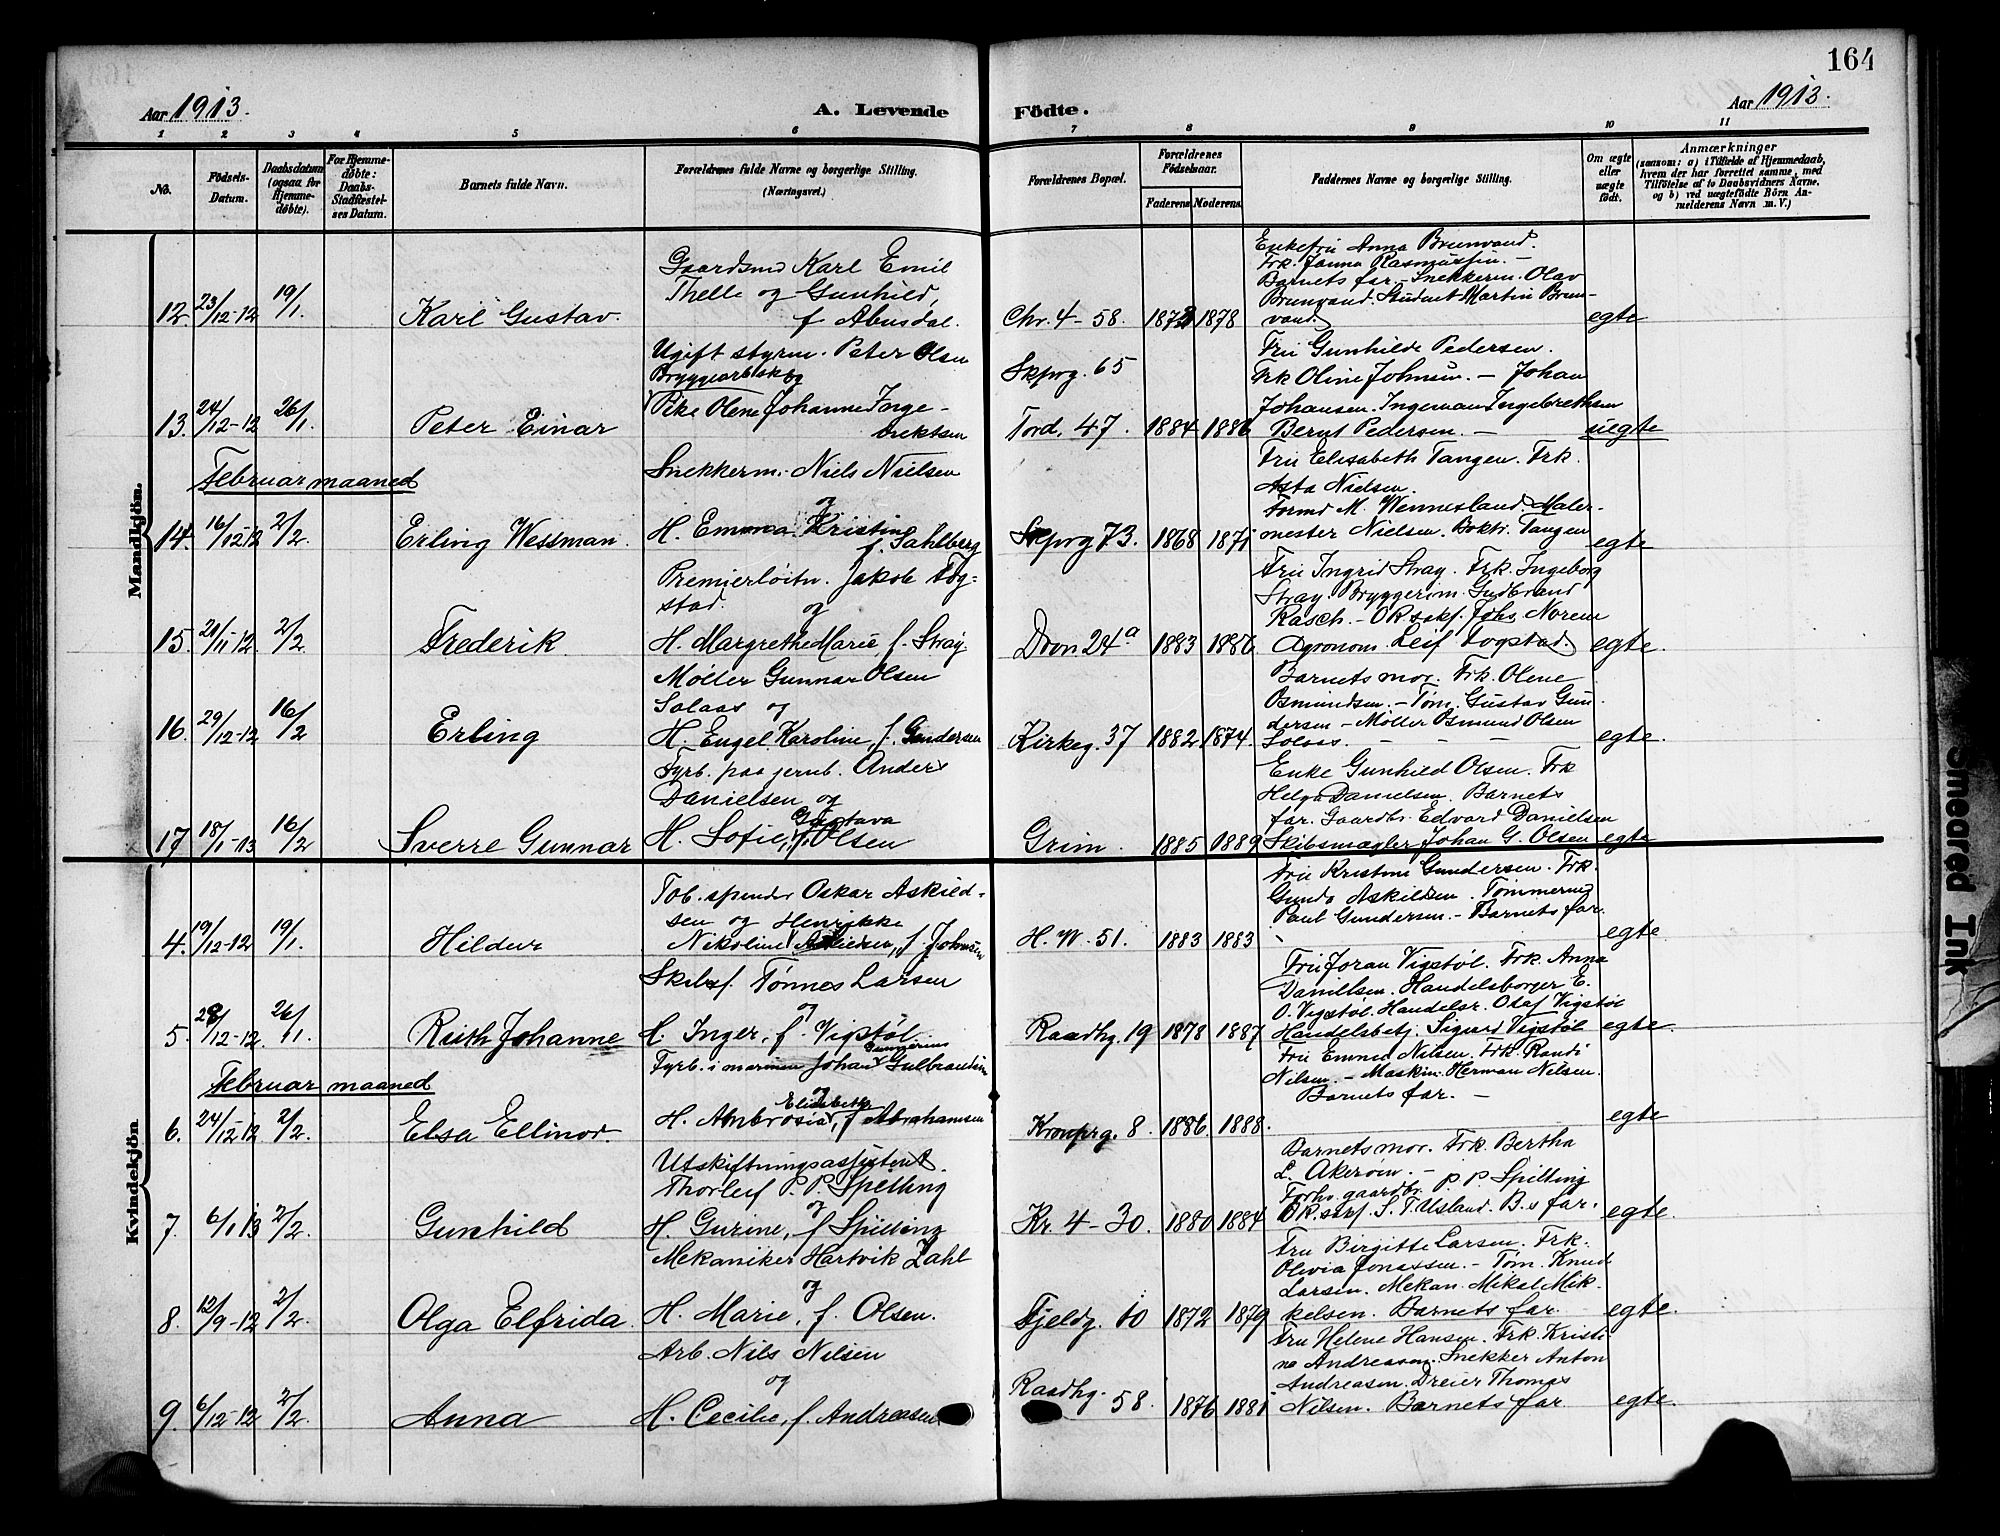 164
Aar 1913.
A. Levende
Födte.
Aar 1913.
1 2 3 4 5 6 7 8 9 10 11
No.
Födsels-Datum.
Daabsdatum (ogsaa for Hjemmedøbte).
For Hjemmedøbte: Daabs-Stadfæstelses Datum.
Barnets fulde Navn.
Forældrenes fulde Navne og borgerlige Stilling.
(Næringsvei.)
Forældrenes Bopæl.
Forældrenes Födselsaar.
Faderens. Moderens.
Faddernes Navne og borgerlige Stilling.
Om ægte eller uægte födt.
Anmærkninger
(saasom: a) i Tilfælde af Hjemmedaab, hvem der har forrettet samme, med Tilföielse af to Daabsvidners Navne, og b) ved uægtefödte Börn Anmelderens Navn m. V.)
Mandkjön.
12. 23/12-12 19/1. Karl Gustav.
Gaardsmd Karl Emil
Thelle og Gunhild,
f Abusdal.
Chr. 4-58. 1878
Enkefru Anna Brunvand.
Frk. Janna Rasmussen. –
Barnets far – Snekkerm. Olav
Brunvand. Student Martin Brun-
vand.
egte
13. 24/12-12 26/1. Peter Einar
Ugift styrm. Peter Olsen
Bryggearb
Pike Olene Johanne Inge-
brektsen
Skprg. 65
Tord. 47. 1884 1886
Fru Gunhilde Pedersen.
Frk Oline Johnsen. – Johan
Johansen. Ingeman Ingebrethsen
Bernt Pedersen. –
uegte
Februar maaned
14. 16/12-12 2/2. Erling Wessman.
Snekkerm. Niels Nielsen
og
H. Emma Kristine
f. Sahlberg
Skprg 73. 1868 1871
Fru Elisabeth Tangen. Frk.
Asta Nielsen.
Formd M. Wennesland. Maler-
mester Nielsen. Boktr. Tangen
egte
15. 21/11-12. 2/2. Frederik.
Premierløitn. Jakob Tog-
stad. og
H. Margrethe Marie f. Stray
Dron. 24a 1883 1886
Fru Ingrid Stray. Frk. Ingeborg
Stray. Bryggerim. Gudbrand
Rasch. – O.R.sakf. Johs Norem
Agronom Leif Togstad.
egte.
16. 29/12-12 16/2 Erling
Møller Gunnar Olsen
Solaas og
H. Engel Karoline, f. Gundersen
Kirkeg. 37 1882 1874.
Barnets mor. Frk. Olene
Osmundsen. – Tøm. Gustav Gun-
dersen – Møller Osmund Olsen
Solaas. – – –
egte.
17. 18/1-13 16/2 Sverre Gunnar
Fyrb. paa jernb. Anders
Danielsen og
Gustava
H. Sofie, f. Olsen
Grim. 1885 1889
Enke Gunhild Olsen. Frk
Helga Danielsen. Barnets
far. Gaardbr. Edvard Danielsen
Skibsmægler Johan G. Olsen
egte
Kvindekjön.
4. 19/12-12 19/1. Hildur
Tob. spinder Oskar Askild-
sen og Henrikke
Nikoline f. Johnsen
H. W. 51. 1883 1883
Fru Kristine Gundersen. Frk.
Gunda Askildsen. Tømmermd
Paul Gundersen. – Barnets far.
egte.
5. 28/12-12. 26/1. Ruth Johanne
Skibsf. Tønnes Larsen
og
H. Inger, f. Vigstøl
Raadhg. 19 1878 1887
Fru Joran Vigstøl. Frk. Anna
Daniellsen. Handelsborger E.
O. Vigstøl. Handelsr. Olaf Vigstøl
Handelsbetj. Sigurd Vigstøl
egte.
Februar maaned
6. 24/12-12 2/2. Elsa Ellinor.
Fyrb. i marinen Johan Gulbrandsen
og
Elisabeth
H. Ambrosia, f Abrahamsen
Kronprg. 8. 1886. 1888.
Fru Emma Nilsen. Frk. Randi
Nilsen. – Maskin. Herman Nilsen.
Barnets far. –
egte
7. 6/1 13 2/2. Gunhild
Utskiftningsassistent
Thorleif P. P. Spilling
og
H. Gurine, f Spilling
Kr. 4-30. 1880 1884
Barnets mor. Frk. Bertha
L. Akerøien. –
Forhv. gaardbr. P. P. Spilling
O.R. sakf. S. T. Usland. B.s far.
egte.
8. 12/9-12 2/2. Olga Elfrida.
Mekaniker Hartvik Zahl
og
H. Marie, f. Olsen.
Fjeldg. 10 1872 1879
Fru Birgitte Larsen. Frk.
Olivia Jonassen. – Tøm. Knud
Larsen. Mekan. Mikal Mik-
kelsen. Barnets far.
egte.
9. 6/12-12 2/2. Anna
Arb. Nils Nilsen
og
H. Cecilie, f. Andreasen
Raadhg. 58. 1876 1881
Fru Helene Hansen. Frk. Kristi-
ne Andreasen. Snekker Anton
Andreasen. Dreier Thomas
Nilsen. Barnets far
egte.
Smeared Ink